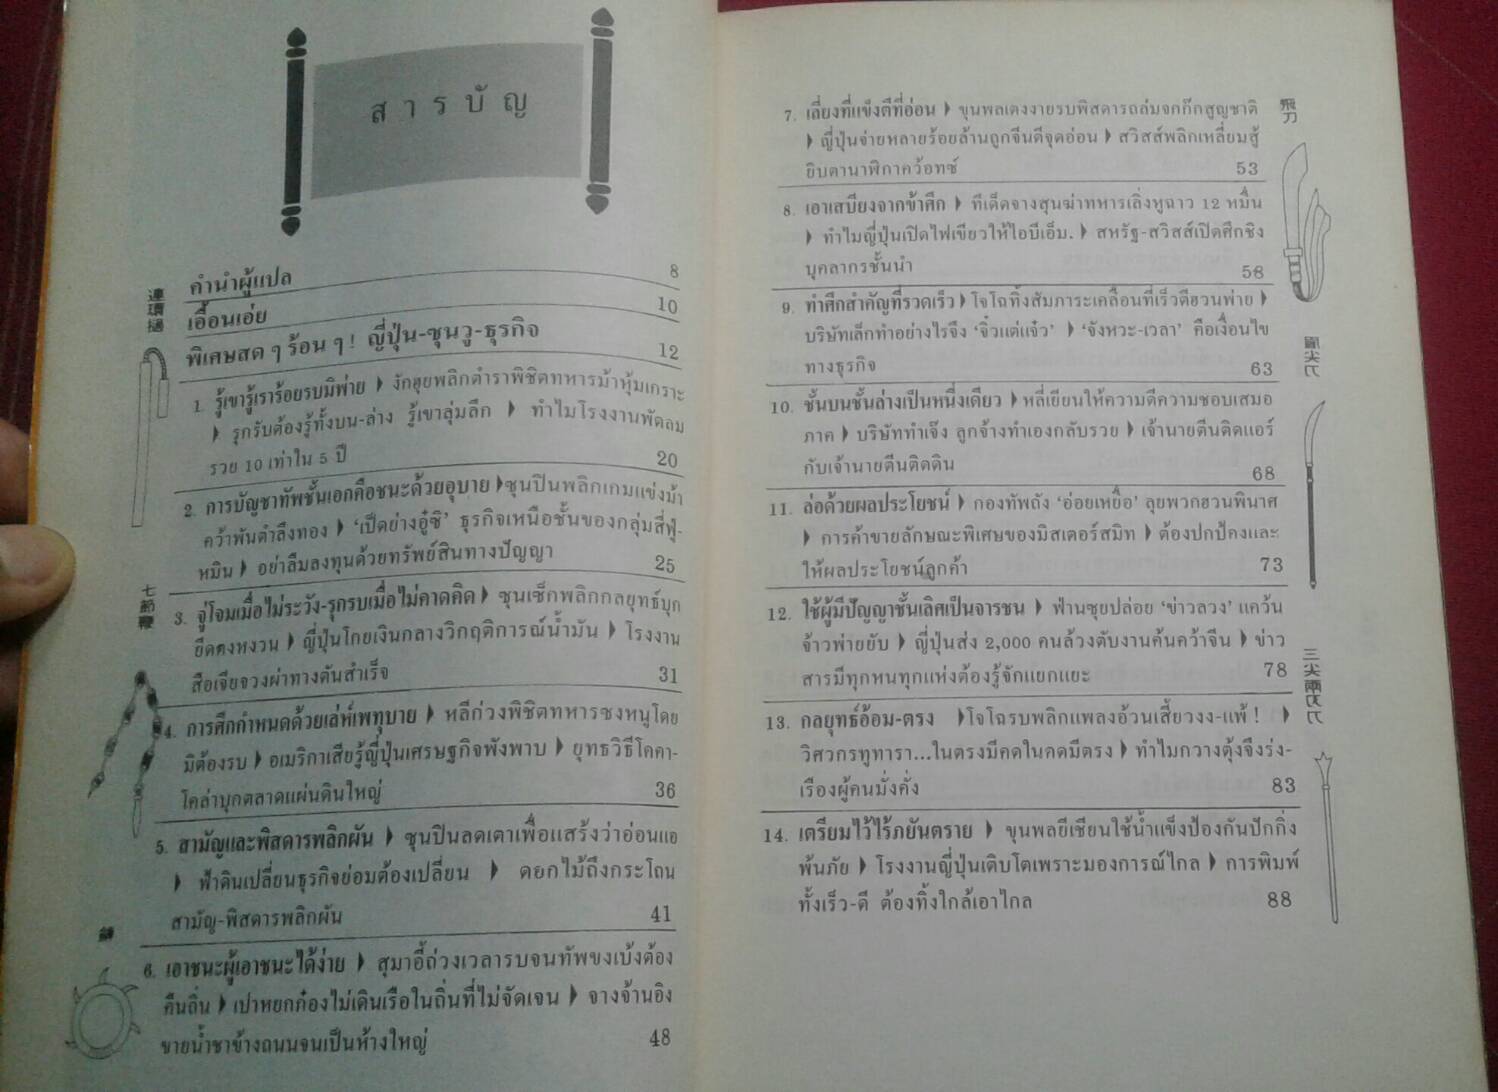 สารบัญ
คำนำผู้แปล 8
เอื้อนเอ่ย 10
พิเศษสด ๆ ร้อน ๆ ! ญี่ปุ่น-ซุนวู-ธุรกิจ 12
1. รู้เขารู้เราร้อยรบมิพ่าย ▶ งักฮุยพลิกตำราพิชิตทหารม้าหุ้มเกราะ
▶ รุกรับต้องรู้ทั้งบน-ล่าง รู้เขาลุ่มลึก ▶ ทำไมโรงงานพัดลม
รวย 10 เท่าใน 5 ปี 20
2. การบัญชาทัพชั้นเอกคือชนะด้วยอุบาย ▶ ซุนปินพลิกเกมแข่งม้า
คว้าพันตำลึงทอง ▶ 'เป็ดย่างอู๋ซิ' ธุรกิจเหนือชั้นของกลุ่มสี่ฟู่-
หมิน ▶ อย่าลืมลงทุนด้วยทรัพย์สินทางปัญญา 25
3. จู่โจมเมื่อไม่ระวัง-รุกรบเมื่อไม่คาดคิด ▶ ซุนเซ็กพลิกกลยุทธ์บุก
ยึดตงหงวน ▶ ญี่ปุ่นโกยเงินกลางวิกฤติการณ์น้ำมัน ▶ โรงงาน
สือเจียจวงผ่าทางตันสำเร็จ 31
4. การศึกกำหนดด้วยเล่ห์เพทุบาย ▶ หลีก่วงพิชิตทหารซงหนูโดย
มิต้องรบ ▶ อเมริกาเสียรู้ญี่ปุ่นเศรษฐกิจพังพาบ ▶ ยุทธวิธีโคคา-
โคล่าบุกตลาดแผ่นดินใหญ่ 36
5. สามัญและพิสดารพลิกผัน ▶ ซุนปินลดเตาเพื่อแสร้งว่าอ่อนแอ
▶ ฟ้าดินเปลี่ยนธุรกิจย่อมต้องเปลี่ยน ▶ ดอกไม้ถึงกระโถน
สามัญ-พิสดารพลิกผัน 41
6. เอาชนะผู้เอาชนะได้ง่าย ▶ สุมาอี้ถ่วงเวลารบจนทัพขงเบ้งต้อง
คืนถิ่น ▶ เปาหยกก๋องไม่เดินเรือในถิ่นที่ไม่จัดเจน ▶ จางจ้านอิง
ขายน้ำชาข้างถนนจนเป็นห้างใหญ่ 48
連環搥
七節鞭
7. เลี่ยงที่แข็งตีที่อ่อน ▶ ขุนพลเตงงายรบพิสดารถล่มจกก๊กสูญชาติ
▶ ญี่ปุ่นจ่ายหลายร้อยล้านถูกจีนตีจุดอ่อน ▶ สวิสส์พลิกเหลี่ยมสู้
ยิบตานาฬิกาคว้อทซ์ 53
8. เอาเสบียงจากข้าศึก ▶ ทีเด็ดจางสุนฆ่าทหารเลิ่งหูฉาว 12 หมื่น
▶ ทำไมญี่ปุ่นเปิดไฟเขียวให้ไอบีเอ็ม. ▶ สหรัฐ-สวิสส์เปิดศึกชิง
บุคลากรชั้นนำ 58
9. ทำศึกสำคัญที่รวดเร็ว ▶ โจโฉทิ้งสัมภาระเคลื่อนที่เร็วตีฮวนพ่าย ▶
บริษัทเล็กทำอย่างไรจึง 'จิ๋วแต่แจ๋ว' ▶ 'จังหวะ-เวลา' คือเงื่อนไข
ทางธุรกิจ 63
10. ชั้นบนชั้นล่างเป็นหนึ่งเดียว ▶ หลี่เยียนให้ความดีความชอบเสมอ
ภาค ▶ บริษัททำเจ๊ง ลูกจ้างทำเองกลับรวย ▶ เจ้านายตีนติดแอร์
กับเจ้านายตีนติดดิน 68
11. ล่อด้วยผลประโยชน์ ▶ กองทัพถัง 'อ่อยเหยื่อ' ลุยพวกฮวนพินาศ
▶ การค้าขายลักษณะพิเศษของมิสเตอร์สมิท ▶ ต้องปกป้องและ
ให้ผลประโยชน์ลูกค้า 73
12. ใช้ผู้มีปัญญาชั้นเลิศเป็นจารชน ▶ ฟ่านซุยปล่อย 'ข่าวลวง' แคว้น
จ้าวพ่ายยับ ▶ ญี่ปุ่นส่ง 2,000 คนล้วงตับงานค้นคว้าจีน ▶ ข่าว
สารมีทุกหนทุกแห่งต้องรู้จักแยกแยะ 78
13. กลยุทธ์อ้อม-ตรง ▶ โจโฉรบพลิกแพลงอ้วนเสี้ยวงง-แพ้ ! ▶
วิศวกรทูทารา...ในตรงมีคดในคดมีตรง ▶ ทำไมกวางตุ้งจึงรุ่ง-
เรืองผู้คนมั่งคั่ง 83
14. เตรียมไว้ไร้ภยันตราย ▶ ขุนพลยีเซียนใช้น้ำแข็งป้องกันปักกิ่ง
พ้นภัย ▶ โรงงานญี่ปุ่นเติบโตเพราะมองการณ์ไกล ▶ การพิมพ์
ทั้งเร็ว-ดี ต้องทิ้งใกล้เอาไกล 88
飛刀
三尖兩刃刀